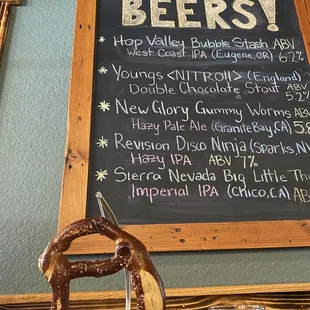 BEERS!
* Hop Valley Bubble Stash ABV
West Coast IPA (Eugene, OR) 6.2%
* Youngs <NITRO!!> (England)
Double Chocolate Stout ABV
5.2%
* New Glory Gummy Worms ABV
Hazy Pale Ale (Granite Bay, CA) 5.
* Revision Disco Ninja (Sparks, NV
Hazy IPA ABV 7%
* Sierra Nevada Big Little Th
Imperial IPA (Chico, CA) ABV